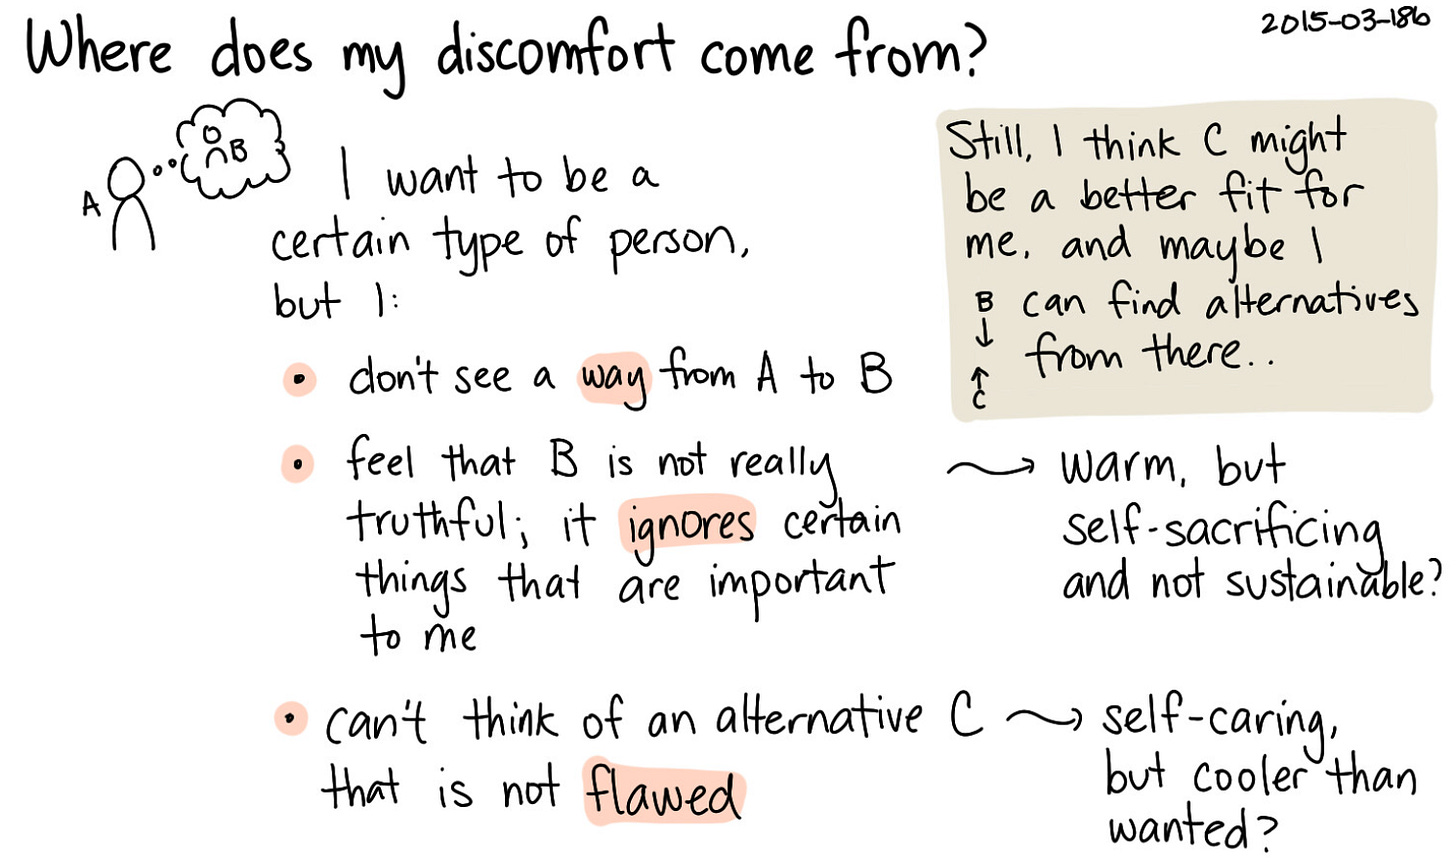 Where does my discomfort come from?
2015-03-18b
A
B
I want to be a
certain type of person,
but I:
• don't see a way from A to B
• feel that B is not really
truthful; it ignores certain
things that are important
to me
→ warm, but
self-sacrificing
and not sustainable?
• can't think of an alternative C
that is not flawed
→ self-caring,
but cooler than
wanted?
Still, I think C might
be a better fit for
me, and maybe I
can find alternatives
from there..
B
↓
↑
C